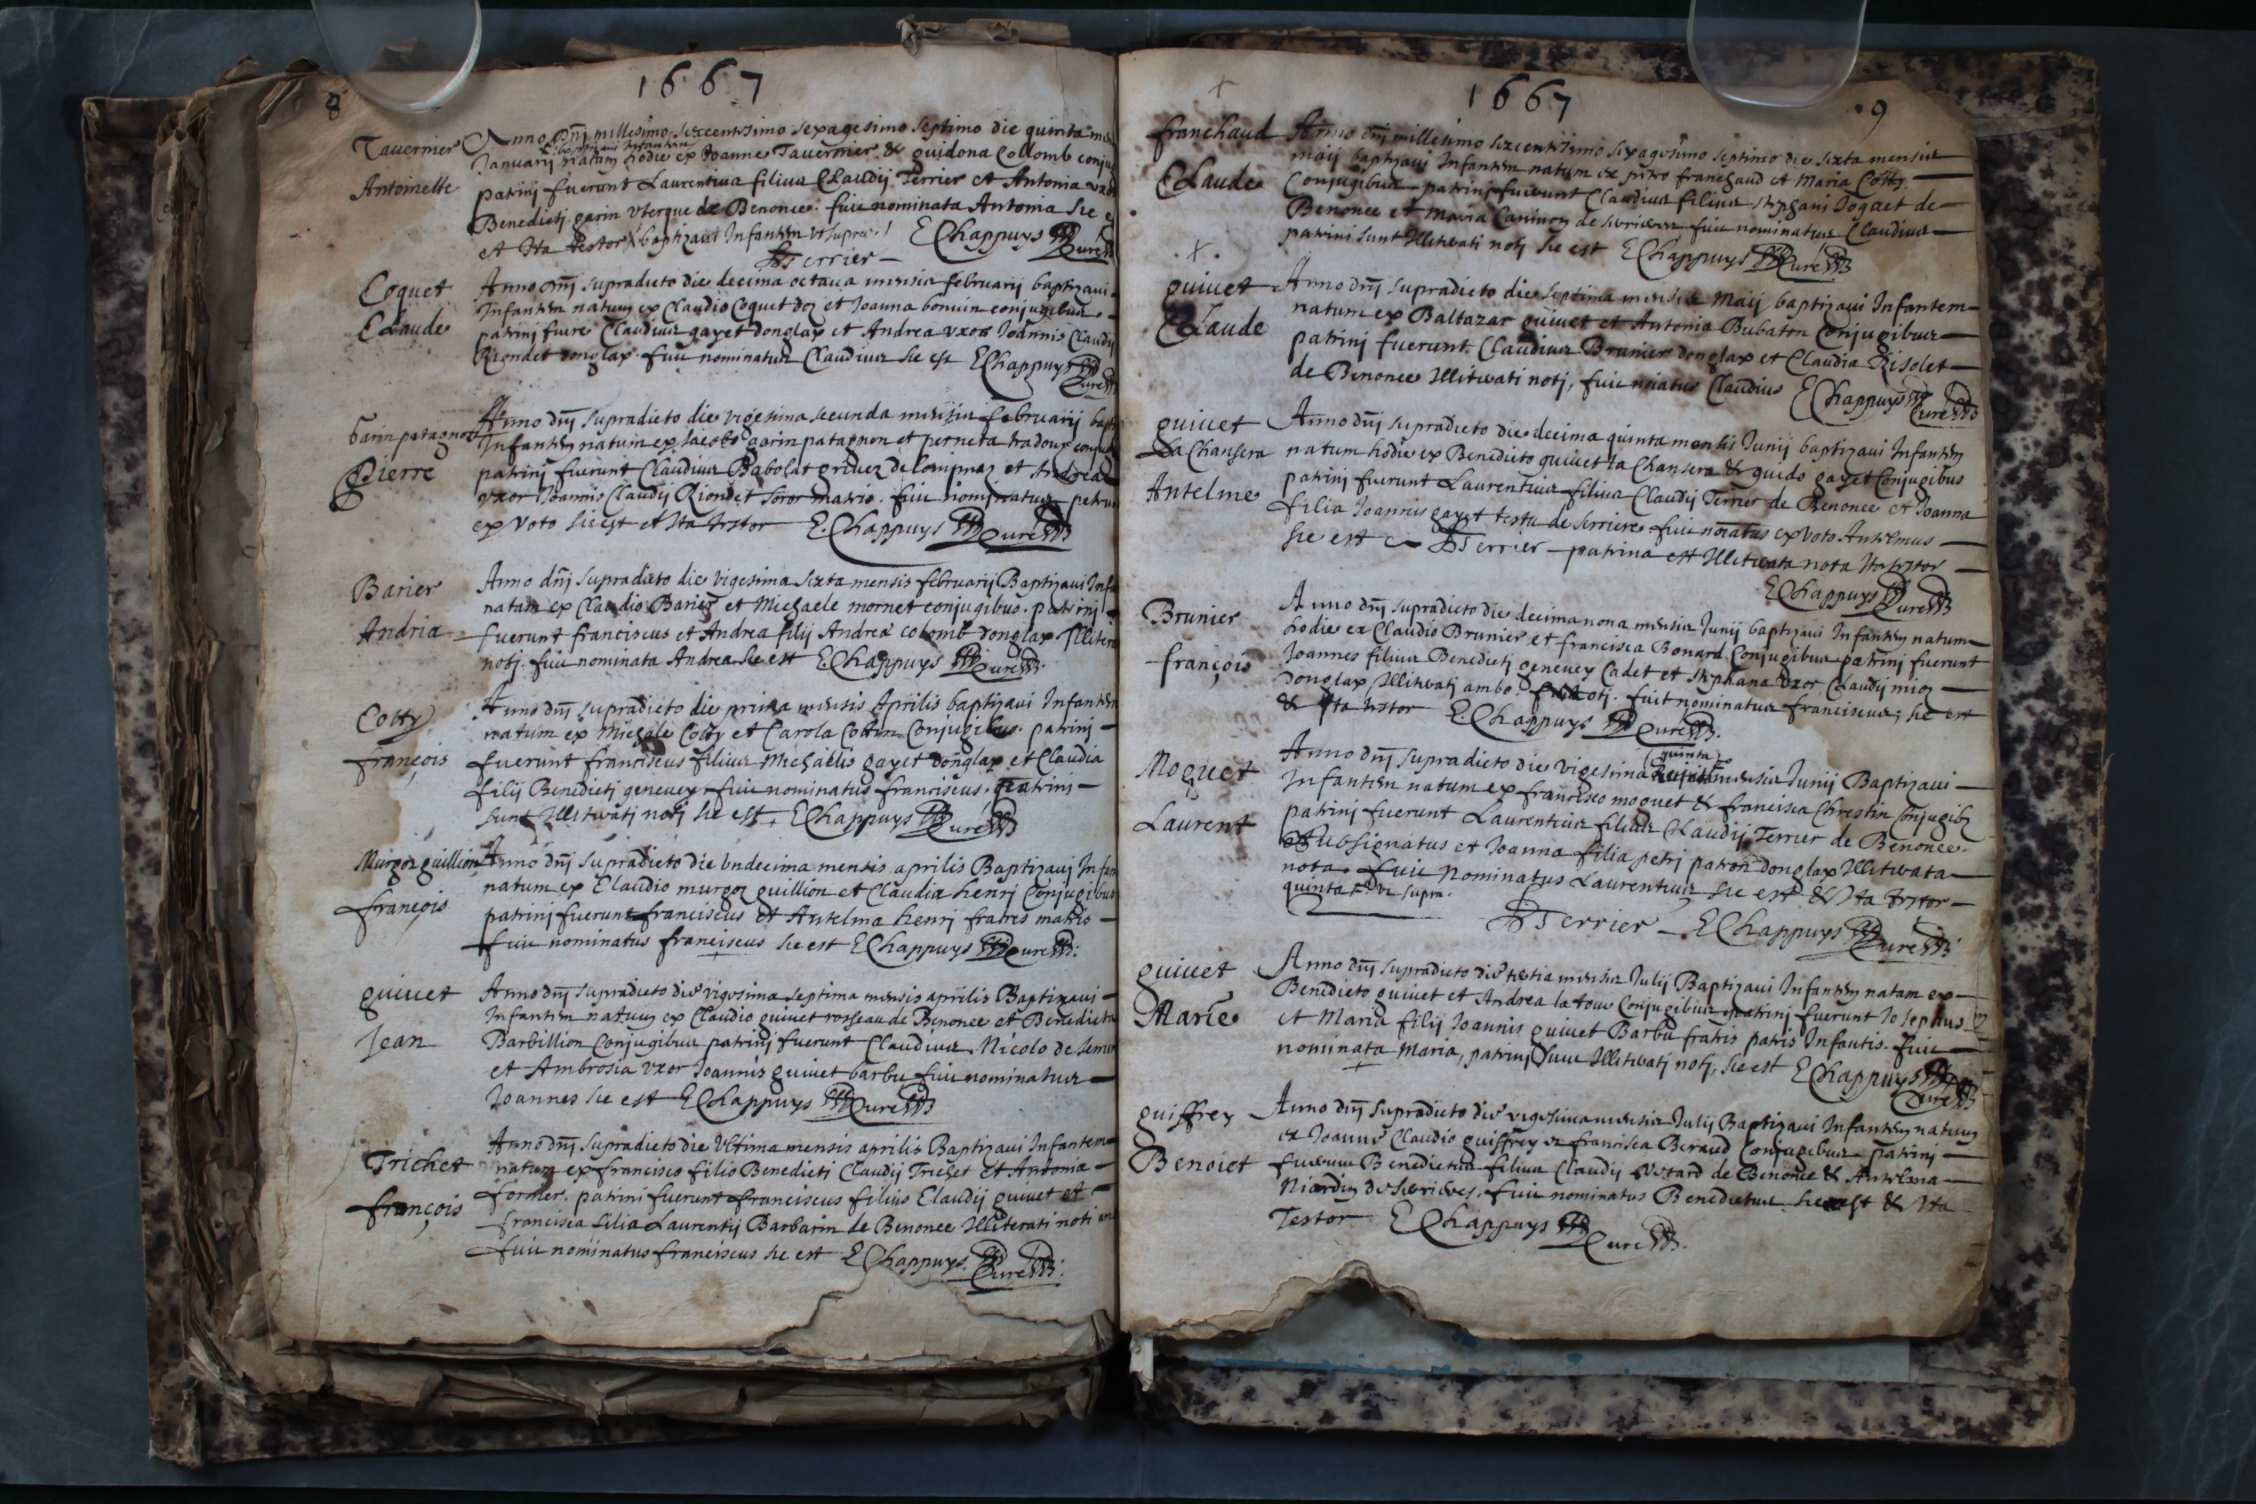 8
1667
Tavernier
Antoinette
Anno Dnj millesimo sexcentesimo sexagesimo septimo die quinta
Januarij natam hodie ex Joanne Tavernier & guidona Collomb
patrinj fuerunt Laurentius filius Claudij Terrier et Antonia
Benedicti garin uterque de Benonce. fuit nominata Antonia sic
et Ita testor baptizavi Infantem ut supra. EChappuys Curé
Terrier
Coquet
Claude
Anno dnj supradicto die decima octava mensis februarij baptizavi
Infantem natum ex Claudio Coquet et Joanna bonvin conjugibus
patrinj fuere Claudius gayet donglax et Andrea uxor Joannis Claudij
Riondet donglax. fuit nominatus Claudius sic est EChappuys
Curé
Garin patagnon
Pierre
Anno dnj supradicto die vigesima secunda mensis februarij
Infantem natum ex Jacobo garin patagnon et perneta tradoux
patrinj fuerunt Claudius Babolat et Andrea
uxor Joannis Claudij Riondet soror matris. fuit nominatus petrus
ex voto sic est et Ita testor E. Chappuys Curé
Barier
Andria
Anno dnj supradicto die vigesima sexta mensis februarij Baptizavi
natam ex Claudio Barier et Michaele mornet conjugibus. patrinj
fuerunt franciscus et Andrea filij Andreæ colomb donglax
notj. fuit nominata Andrea sic est E.Chappuys Curé
Cotty
françois
Anno dnj supradicto die prima mensis Aprilis baptizavi Infantem
natum ex Michaele Cotty et Carola Cottin Conjugibus. patrinj
fuerunt franciscus filius Michaelis gayet donglax et Claudia
filij Benedicti genevey fuit nominatus franciscus, patrini
sunt Illiteratj notj sic est. EChappuys Curé
Murgoz guillion
françois
Anno dnj supradicto die undecima mensis aprilis Baptizavj
natum ex Claudio murgoz guillion et Claudia henrj Conjugibus
patrinj fuerunt franciscus et Antelma henrj fratres matris
fuit nominatus franciscus sic est EChappuys Curé
guivet
Jean
Anno dnj supradicto die vigesima septima mensis aprilis Baptizavi
Infantem natum ex Claudio guivet rosseau de Benonce et Benedicta
Barbillion Conjugibus patrinj fuerunt Claudius Nicolo de
et Ambrosia uxor Joannis guivet barbu fuit nominatus
Joannes sic est EChappuys Curé
Trichet
françois
Anno dnj supradicto die Ultima mensis aprilis Baptizavi Infantem
natum ex francisco filio Benedicti Claudij Trichet et Antonia
former. patrini fuerunt franciscus filius Claudij guivet et
francisca filia Laurentij Barbarin de Benonce Illiterati noti
fuit nominatus franciscus sic est EChappuys.
Curé
1667
9
franchaud
Claude
Anno dnj millesimo sexcentesimo sexagesimo septimo die sexta mensis
maij baptizavi Infantem natum ex petro franchaud et Maria Cotty
Conjugibus patrinj fuerunt Claudius filius stephani Jogaet de
Benonce et Maria de serrieres fuit nominatus Claudius
patrini sunt Illiterati notj sic est EChappuys Curé
guivet
Claude
Anno dnj supradicto die septima mensis Maij baptizavi Infantem
natum ex Baltazar guivet et Antonia Bubaton Conjugibus
patrinj fuerunt Claudius Brunier donglax et Claudia Risolet
de Benonce Illiterati notj, fuit noiatus Claudius EChappuys
Curé
guivet
La Chansera
Antelme
Anno dnj supradicto die decima quinta mensis Junij baptizavi Infantem
natum hodie ex Benedicto guivet la Chansera & guido gayet Conjugibus
patrinj fuerunt Laurentius filius Claudij Terrier de Benonce et Joanna
filia Joannis gayet testu de serriere. fuit noiatus ex voto Antelmus
sic est Terrier patrina est Illiterata nota Ita testor
EChappuys Curé
Brunier
françois
Anno dnj supradicto die decima nona mensis Junij baptizavi Infantem natum
hodie ex Claudio Brunier et francisca Bonard Conjugibus patrinj fuerunt
Joannes filius Benedicti genevey Cadet et stephana uxor Claudij
donglax Illiteratj ambo. notj. fuit nominatus franciscus, sic est
& Ita testor E.Chappuys Curé
Moquet
Laurent
Anno dnj supradicto die vigesima quinta mensis Junij Baptizavi
Infantem natum ex francisco moquet & francisca Chrestin Conjugib
patrinj fuerunt Laurentius filius Claudij Terrier de Benonce
subsignatus et Joanna filia petrj patron donglax Illiterata
nota. fuit nominatus Laurentius sic est & Ita testor
quinta ut supra.
Terrier EChappuys
Curé
guivet
Marie
Anno dnj supradicto die tertia mensis Julij Baptizavi Infantem natam ex
Benedicto guivet et Andrea la tour Conjugibus patrinj fuerunt Josephus
et Maria filij Joannis guivet Barbu fratris patris Infantis. fuit
nominata Maria, patrinj sunt Illiteratj notj, sic est EChappuys
Curé
guiffrey
Benoict
Anno dnj supradicto die vigesima mensis Julij Baptizavi Infantem natum
ex Joanne Claudio guiffrey et francisca Beraud Conjugibus patrinj
fuerunt Benedictus filius Claudij de Benonce & Antelma
de serrieres. fuit nominatus Benedictus sic est & Ita
Testor EChappuys
Curé